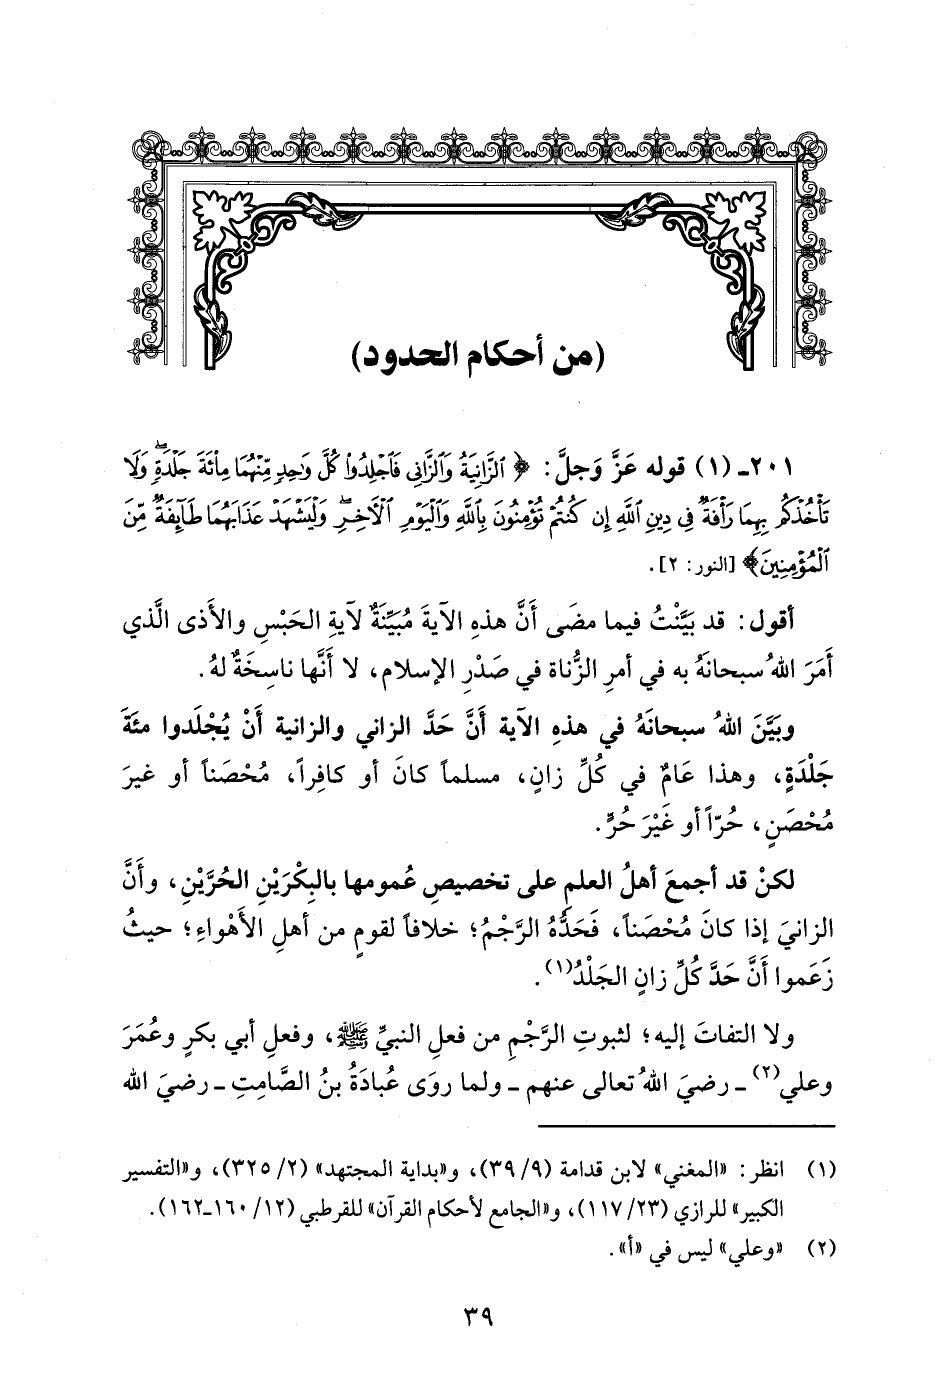 (من أحكام الحدود)
٢٠١ـ (١) قوله عَزَّ وَجلَّ: ﴿ ٱلزَّانِيَةُ وَٱلزَّانِى فَٱجْلِدُوا۟ كُلَّ وَٰحِدٍ مِّنْهُمَا مِا۟ئَةَ جَلْدَةٍۖ وَلَا
تَأْخُذْكُم بِهِمَا رَأْفَةٌ فِى دِينِ ٱللَّهِ إِن كُنتُمْ تُؤْمِنُونَ بِٱللَّهِ وَٱلْيَوْمِ ٱلْـَٔاخِرِۖ وَلْيَشْهَدْ عَذَابَهُمَا طَآئِفَةٌ مِّنَ
ٱلْمُؤْمِنِينَ﴾ [النور: ٢].
أقول: قد بَيَّنْتُ فيما مضَى أَنَّ هذهِ الآيةَ مُبَيِّنَةٌ لآيةِ الحَبْسِ والأَذى الَّذي
أَمَرَ اللهُ سبحانَهُ به في أمرِ الزُّناة في صَدْرِ الإسلام، لا أَنَّها ناسِخَةٌ لهُ.
وبَيَّنَ اللهُ سبحانَهُ في هذهِ الآية أَنَّ حَدَّ الزاني والزانية أَنْ يُجْلَدوا مئةَ
جَلْدَةٍ، وهذا عَامٌ في كُلِّ زانٍ، مسلماً كانَ أو كافِراً، مُحْصَناً أو غيرَ
مُحْصَنٍ، حُرّاً أو غَيْرَ حُرٍّ.
لكنْ قد أجمعَ أهلُ العلمِ على تخصيصِ عُمومها بالبِكْرَيْنِ الحُرَّيْنِ، وأَنَّ
الزانيَ إذا كانَ مُحْصَناً، فَحَدُّهُ الرَّجْمُ؛ خلافاً لقومٍ من أهلِ الأَهْواءِ؛ حيثُ
زَعَموا أَنَّ حَدَّ كُلِّ زانٍ الجَلْدُ(١).
ولا التفاتَ إليه؛ لثبوتِ الرَّجْمِ من فعلِ النبيِّ ﷺ، وفعلِ أبي بكرٍ وعُمَرَ
وعلي(٢) ـ رضيَ اللهُ تعالى عنهم ـ ولما روَى عُبادَةُ بنُ الصَّامِتِ ـ رضيَ الله
(١) انظر: «المغني» لابن قدامة (٩/ ٣٩)، و«بداية المجتهد» (٢/ ٣٢٥)، و«التفسير
الكبير» للرازي (٢٣/ ١١٧)، و«الجامع لأحكام القرآن» للقرطبي (١٢/ ١٦٠ـ١٦٢).
(٢) «وعلي» ليس في «أ».
٣٩